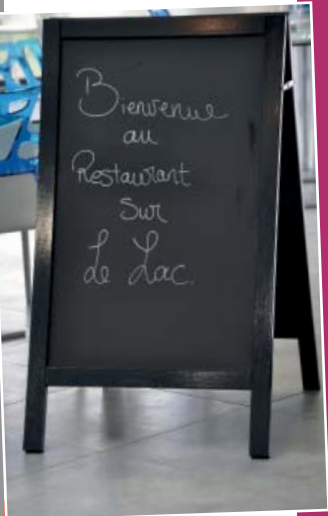 Bienvenue
au
Restaurant
Sur
Le Lac.